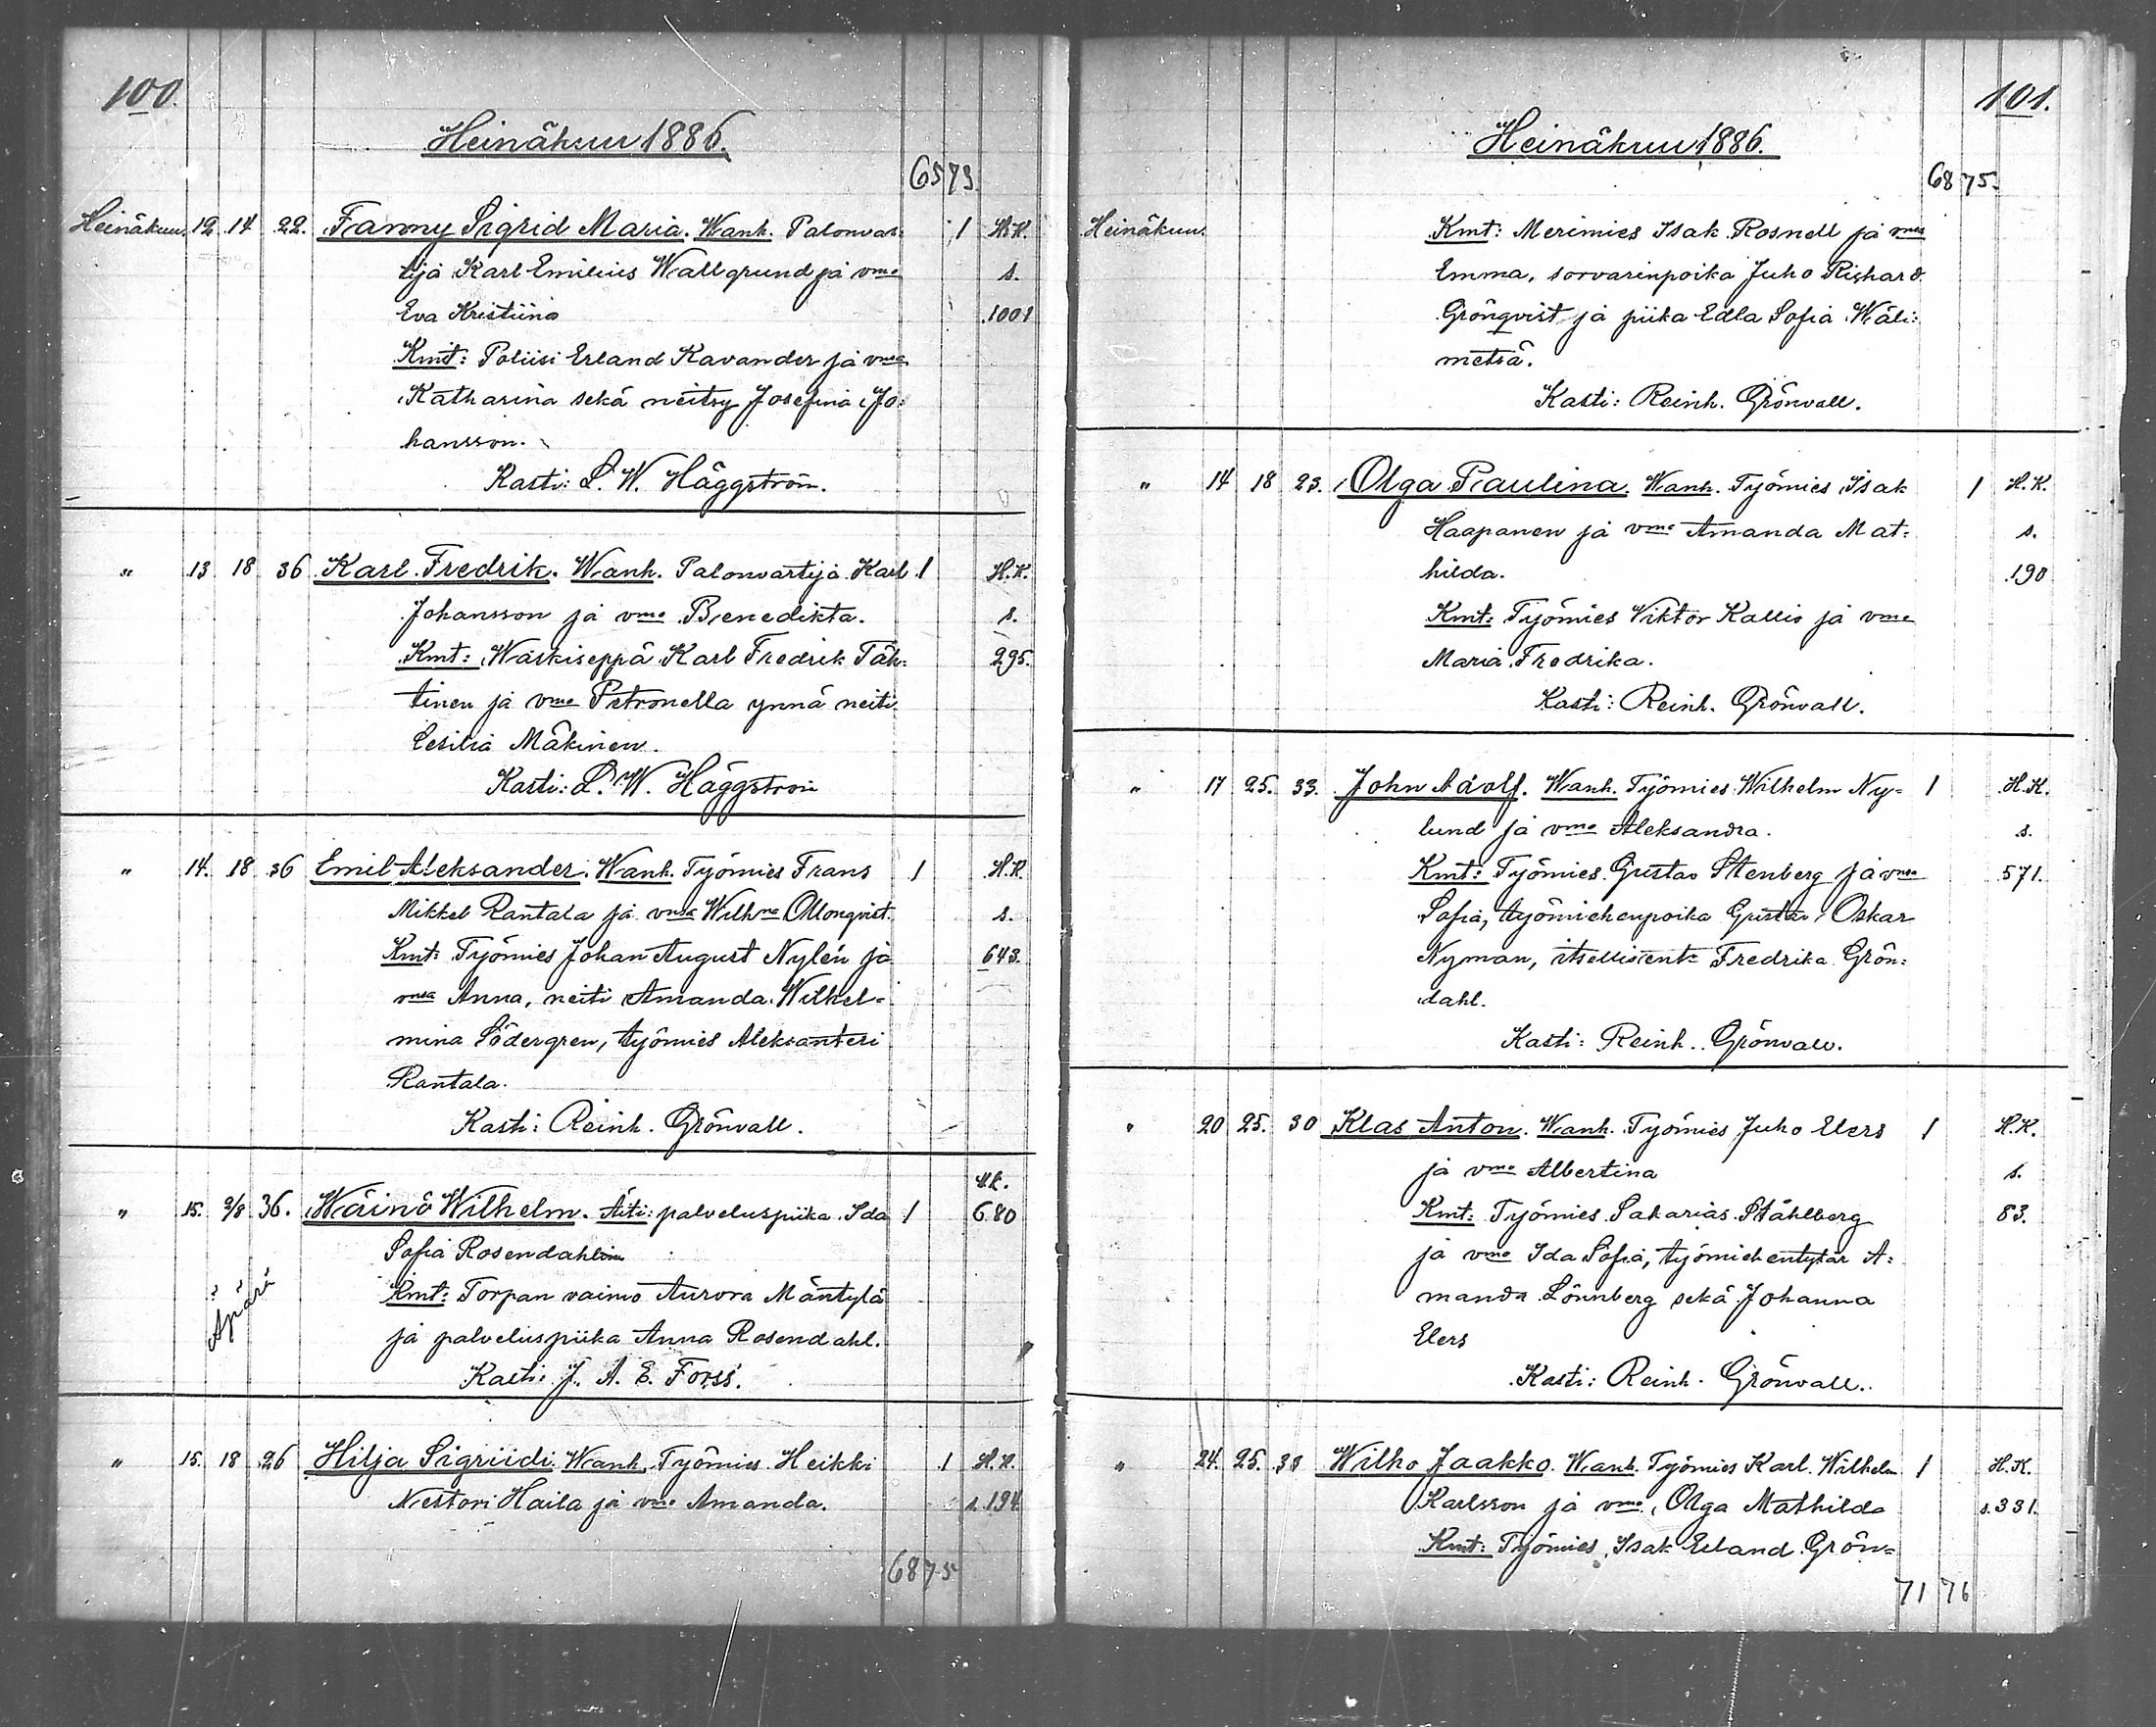 100.
Heinäkuu 1886.
65 73.
Heinäkuu. 12 14 22. Fanny Sigrid Maria. Wanh. Palonvar- 1 H.K.
tija Karl Emilius Wallgrund ja vmo s.
Eva Kristiina 1001
Kmt: Poliisi Erland Kavander ja vmo
Katharina sekä neitsy Josefina Jo:
hansson.
Kasti: L. W. Häggström.
" 13 18 36 Karl Fredrik. Wanh. Palonvartija Karl 1 H.K.
Johansson ja vmo Benedikta. s.
Kmt: Waskiseppä Karl Fredrik Täh: 295.
tinen ja vmo Petronella ynnä neiti
Cesilia Mäkinen.
Kasti: L. W. Häggström
" 14. 18 36 Emil Aleksander. Wanh. Työmies Frans 1 H.K.
Mikkel Rantala ja vmsa Wilhna Ollonqvist. s.
Kmt: Työmies Johan August Nylén ja 643.
vmsa Anna, neiti Amanda Wilhel=
mina Södergren, työmies Aleksanteri
Rantala.
Kasti: Reinh. Grönvall.
" 15. 2/8 36. Wäinö Wilhelm. Äiti: palveluspiika Ida 1 Kk. 680
Sofia Rosendahlin
Äpärä
Kmt: Torpan vaimo Aurora Mäntylä
ja palveluspiika Anna Rosendahl.
Kasti: J. A. E. Forss.
" 15. 18 26 Hilja Sigriidi. Wanh. Työmies Heikki 1 H.K.
Nestori Haila ja vmo Amanda. s. 194
68 75
101.
Heinäkuu 1886.
68 75.
Heinäkuu. Kmt: Merimies Isak Rosnell ja vmo
Emma, sorvarinpoika Juho Rishard
Grönqvist ja piika Edla Sofia Wäli:
metsä.
Kasti: Reinh. Grönvall.
" 14 18 23. Olga Paulina. Wanh. Työmies Isak 1 H.K.
Haapanen ja vmo Amanda Mat: s.
hilda. 190
Kmt: Työmies Viktor Kallio ja vmo
Maria Fredrika.
Kasti: Reinh. Grönvall.
" 17 25. 33. John Adolf. Wanh. Työmies Wilhelm Ny= 1 H.K.
lund ja vmo Aleksandra. s.
Kmt: Työmies Gustav Stenberg ja vmsa 571.
Sofia, työmiehenpoika Gustav Oskar
Nyman, itsellisent: Fredrika Grön:
dahl.
Kasti: Reinh. Grönvall.
" 20 25. 30 Klas Anton. Wanh. Työmies Juho Elers 1 H.K.
ja vmo Albertina s.
Kmt: Työmies Sakarias Ståhlberg 83.
ja vmo Ida Sofia, työmiehentytär A:
manda Lönnberg sekä Johanna
Elers
Kasti: Reinh. Grönvall.
" 24. 25. 38 Wilho Jaakko. Wanh. Työmies Karl Wilhelm 1 H.K.
Karlsson ja vmo Olga Mathilda s. 331.
Kmt: Työmies Isak Erland Grön=
71 76